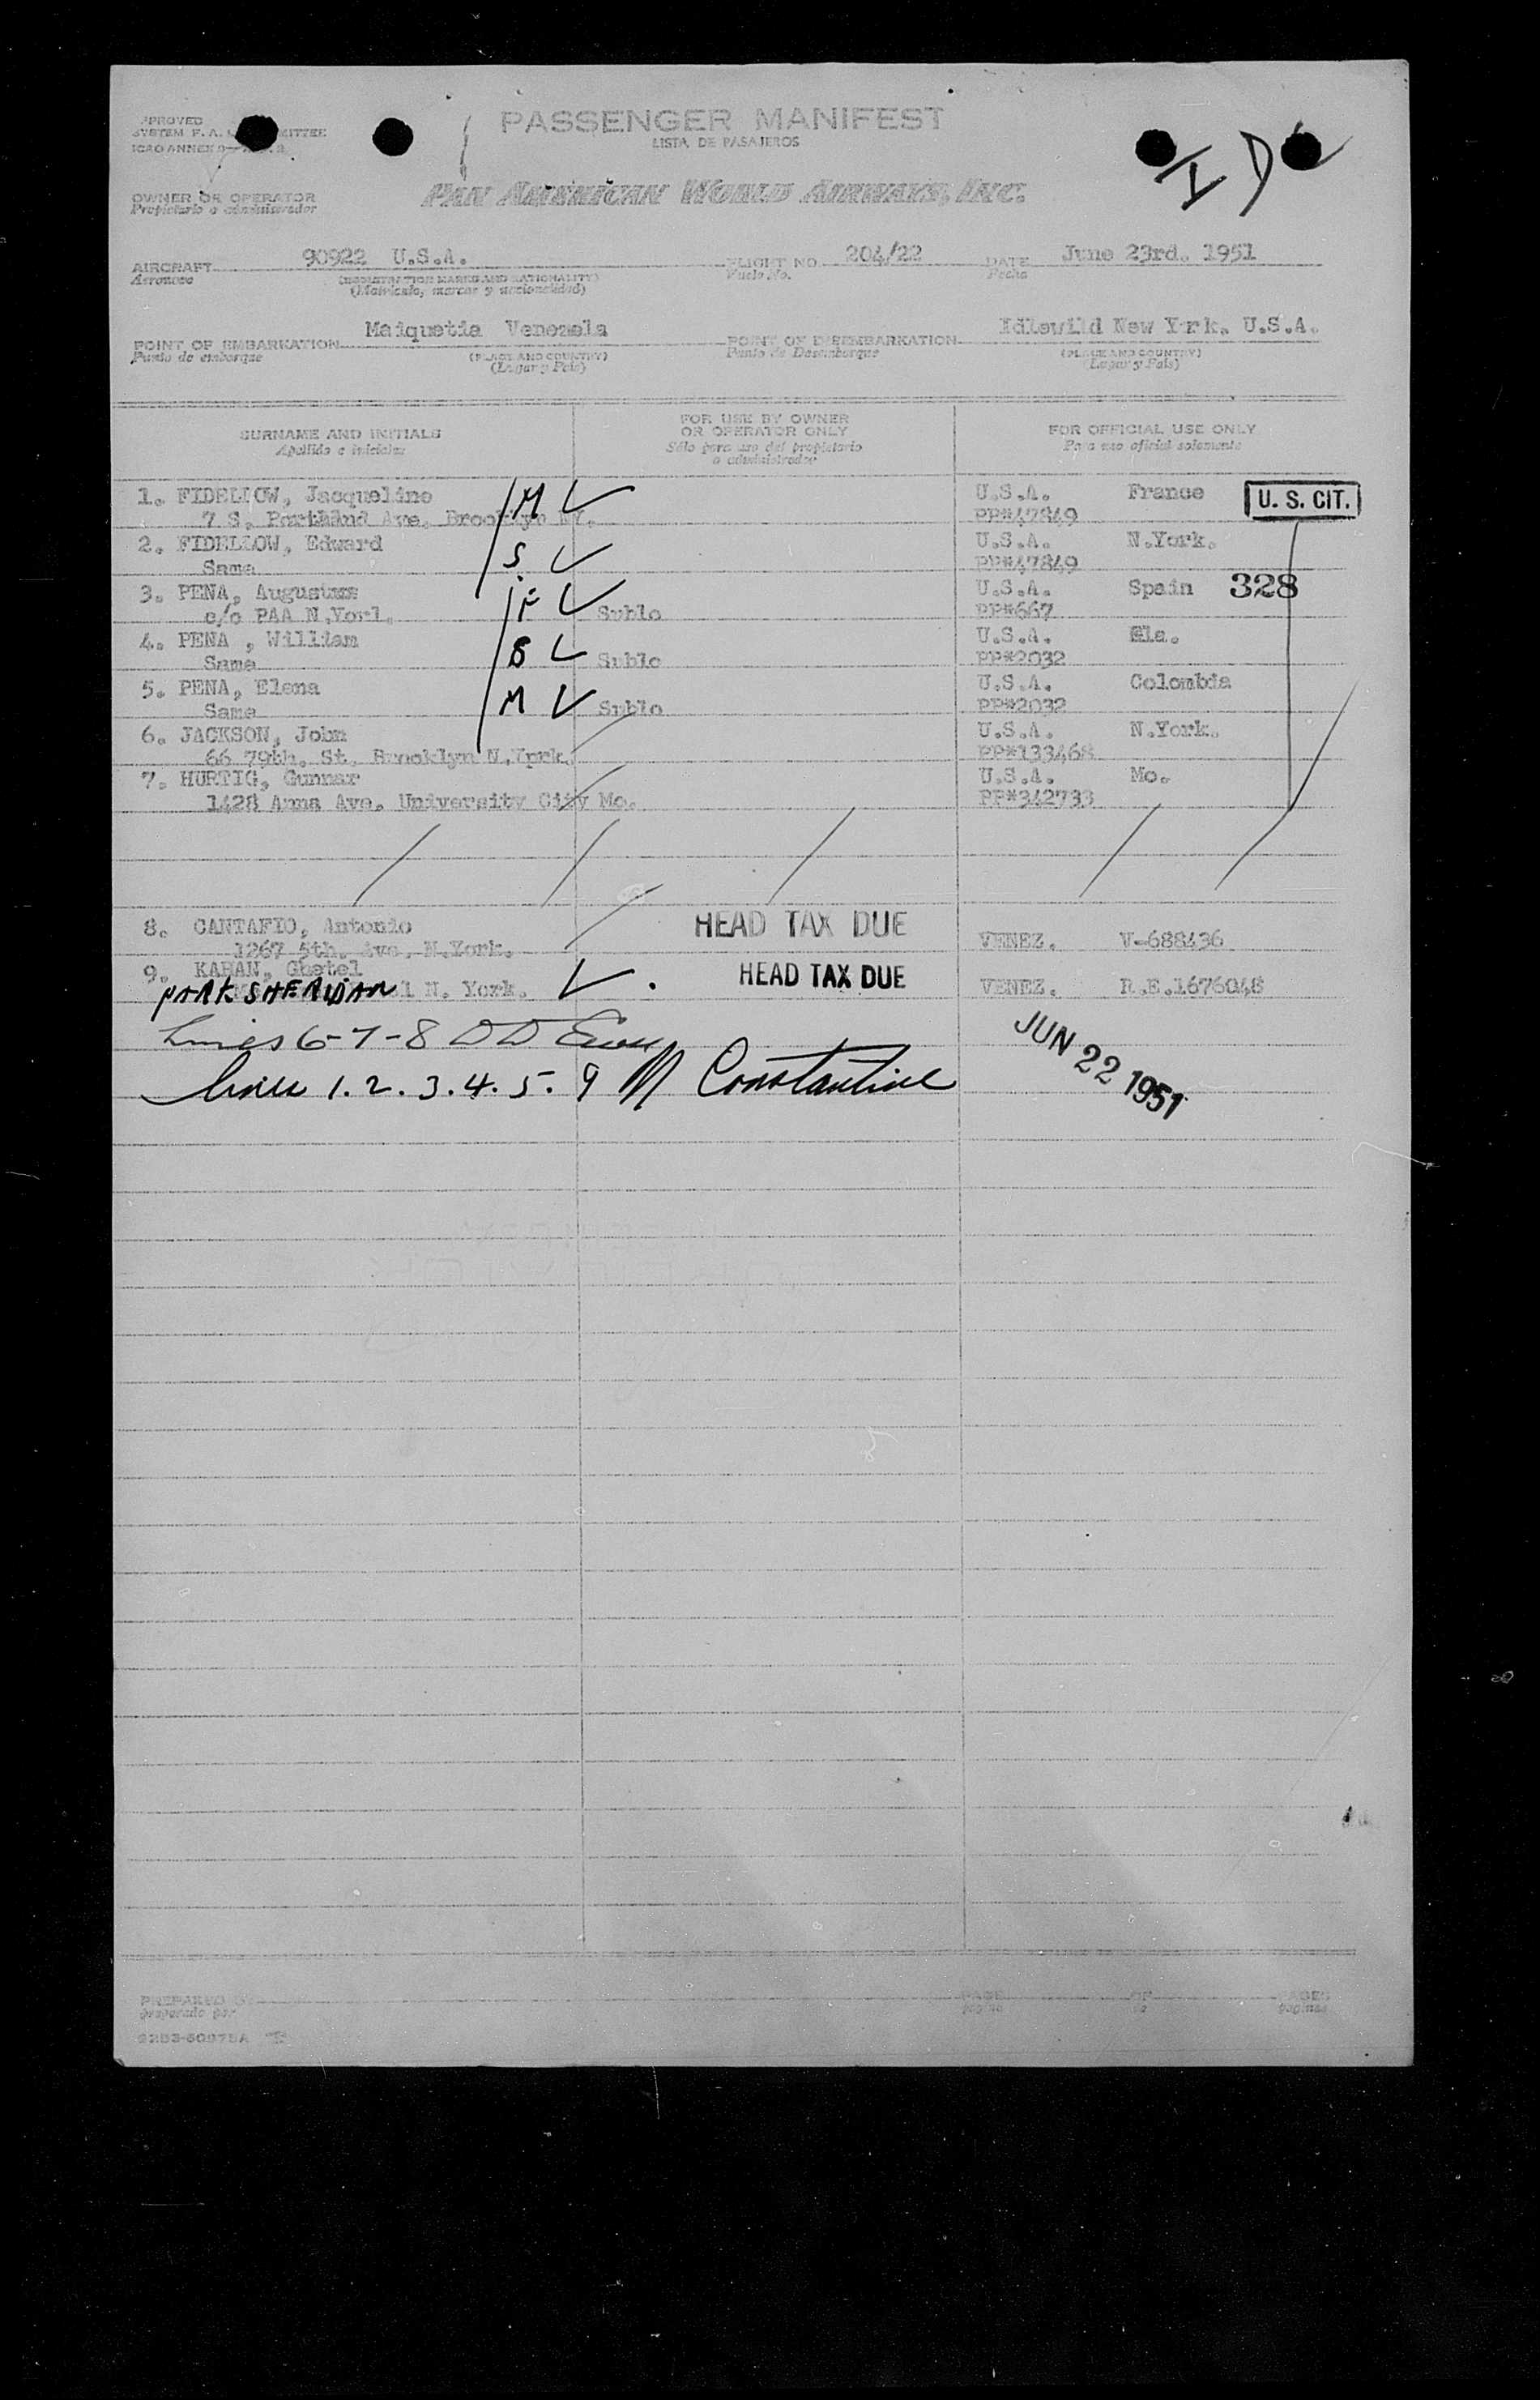 PASSENGER MANIFEST
LISTA DE PASAJEROS
OWNER OR OPERATOR
Propietario o administrador
PAN AMERICAN WORLD AIRWAYS, INC.
AIRCRAFT 90922 U.S.A. FLIGHT NO. 204/22 DATE June 23rd. 1951
Aeronave (REGISTRATION MARKS AND NATIONALITY) Vuelo No. Fecha
(Matricula, marcas y nacionalidad)
POINT OF EMBARKATION Maiquetia Venezela POINT OF DISEMBARKATION Idlewild New York. U.S.A.
Punto de embarque (PLACE AND COUNTRY) Punto de Desembarque (PLACE AND COUNTRY)
(Lugar y Pais) (Lugar y Pais)
SURNAME AND INITIALS FOR USE BY OWNER OR OPERATOR ONLY FOR OFFICIAL USE ONLY
Apellido e iniciales Sólo para uso del propietario o administrador Para uso oficial solamente
1. FIDELLOW, Jacqueline M U.S.A. France U. S. CIT.
7 S. Ave. Brooklyn PP#47849
2. FIDELLOW, Edward S. U.S.A. N.York.
Same PP#47849
3. PENA, F U.S.A. Spain 328
c/o PAA N.Yorl. Sublo PP#667
4. PENA , William S U.S.A.
Same Sublo PP#2032
5. PENA, Elena M U.S.A. Colombia
Same Sublo PP#2032
6. JACKSON, John U.S.A. N.York.
66 79th. St. Brooklyn N.York. PP#133468
7. HURTIG, Gunnar U.S.A. Mo.
1428 Anna Ave. University City Mo. PP#342733
8. CANTAFIO, Antonio HEAD TAX DUE VENEZ. V-688436
1267 5th. Ave. N.York.
9. KAHAN, HEAD TAX DUE VENEZ. R.E.1676048
PARK SHERIDAN N. York.
Lines 6-7-8
Lines 1.2.3.4.5.9 Constantine
JUN 22 1951
PREPARED BY PAGE OF PAGES
preparado por página de páginas